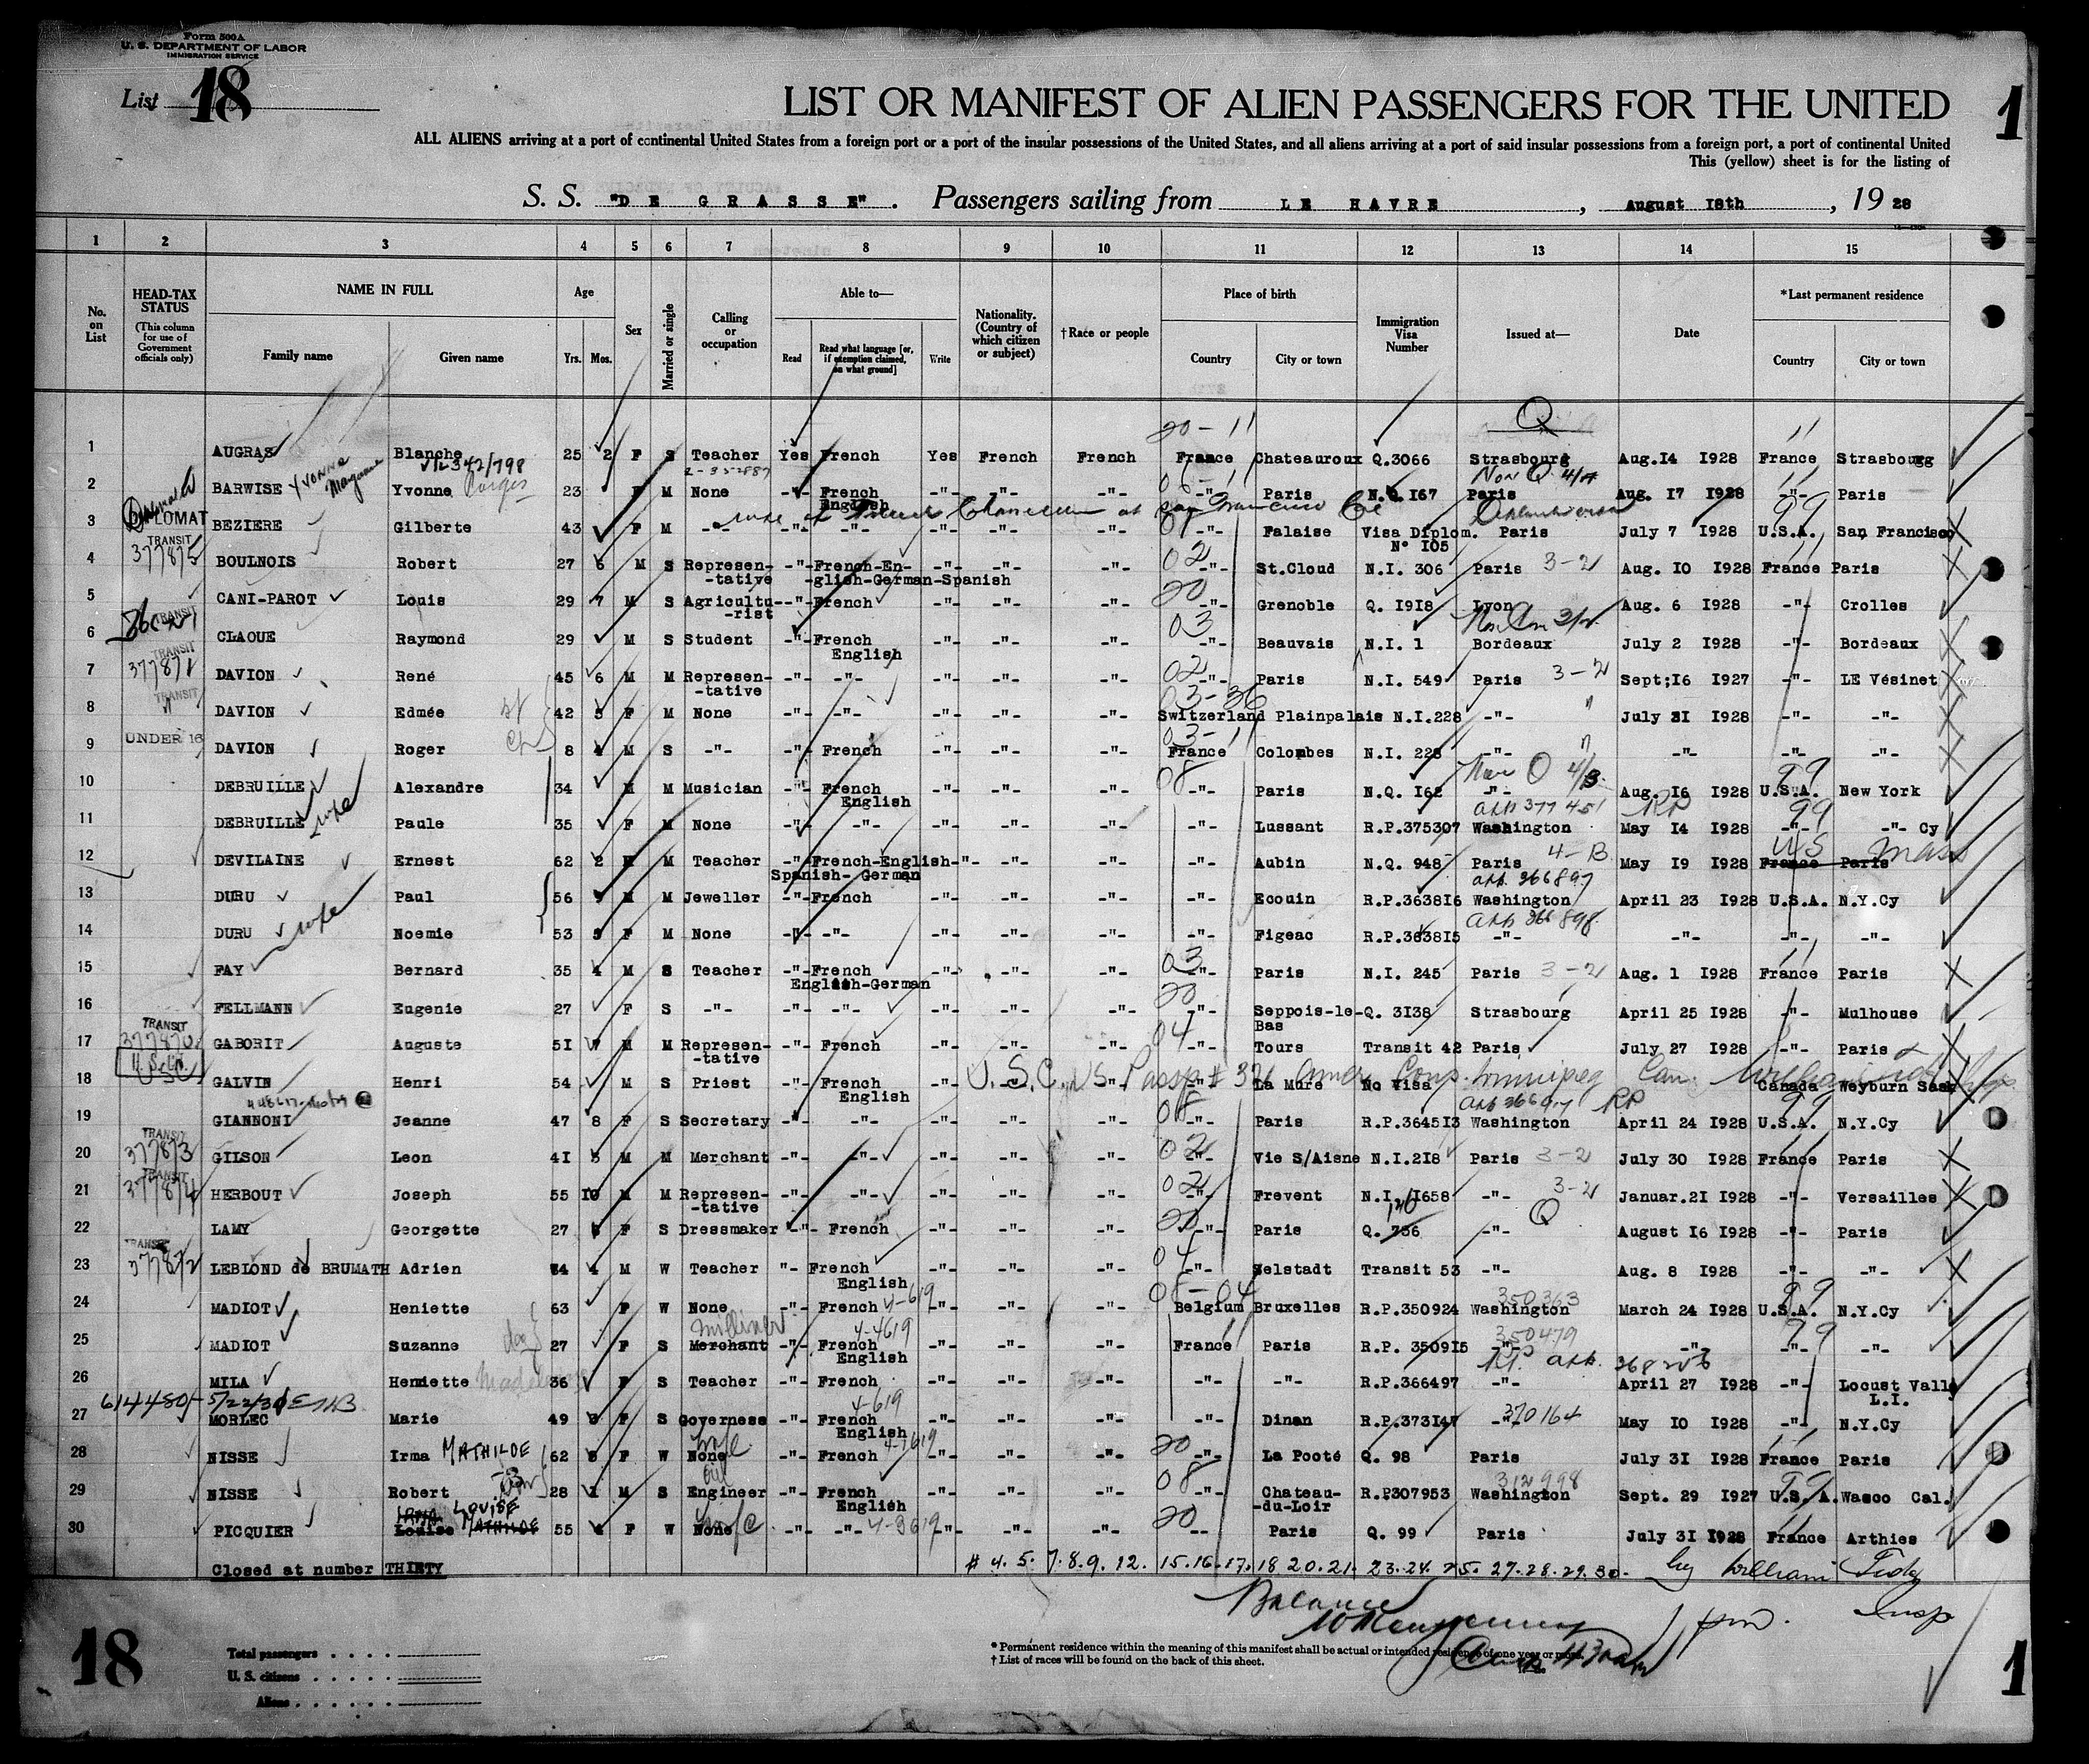 Form 500A
U. S. DEPARTMENT OF LABOR
IMMIGRATION SERVICE
List 18
LIST OR MANIFEST OF ALIEN PASSENGERS FOR THE UNITED
1
ALL ALIENS arriving at a port of continental United States from a foreign port or a port of the insular possessions of the United States, and all aliens arriving at a port of said insular possessions from a foreign port, a port of continental United
This (yellow) sheet is for the listing of
S. S. "DE GRASSE". Passengers sailing from LE HAVRE, August 18th, 19 28
1 2 3 4 5 6 7 8 9 10 11 12 13 14 15
No. on List
HEAD-TAX STATUS (This column for use of Government officials only)
NAME IN FULL
Family name Given name
Age
Yrs. Mos.
Sex
Married or single
Calling or occupation
Able to—
Read
Read what language [or, if exemption claimed, on what ground]
Write
Nationality. (Country of which citizen or subject)
†Race or people
Place of birth
Country City or town
Immigration Visa Number
Issued at—
Date
*Last permanent residence
Country City or town
20 - 11 Q 11
1 AUGRAS Blanche 25 2 F S Teacher Yes French Yes French French France Chateauroux Q.3066 Strasbourg Aug.14 1928 France Strasbourg
Yvonne Marguerite Non Q 4/
2 BARWISE Yvonne 23 F M None -"- French English -"- -"- -"- -"- Paris N.Q. 167 Paris Aug. 17 1928 -"- Paris
DIPLOMAT wife of French Chancellor at San Francisco Cal 99
3 BEZIERE Gilberte 43 F M -"- -"- -"- -"- -"- -"- -"- Falaise Visa Diplom. N° 105 Paris July 7 1928 U.S.A. San Francisco
TRANSIT 377875 02 3-2 11
4 BOULNOIS Robert 27 6 M S Represen-tative -"- French-En-glish-German-Spanish -"- -"- -"- -"- St.Cloud N.I. 306 Paris Aug. 10 1928 France Paris
20
5 CANI-PAROT Louis 29 7 M S Agricultu-rist -"- French -"- -"- -"- -"- Grenoble Q. 1918 Lyon Aug. 6 1928 -"- Crolles
TRANSIT 03
6 CLAOUE Raymond 29 M S Student -"- French English -"- -"- -"- -"- Beauvais N.I. 1 Bordeaux July 2 1928 -"- Bordeaux
TRANSIT 377871 02 3-2
7 DAVION René 45 6 M M Represen-tative -"- -"- -"- -"- -"- -"- Paris N.I. 549 Paris Sept;16 1927 -"- LE Vésinet
TRANSIT " 03-36
8 DAVION Edmée 42 5 F M None -"- -"- -"- -"- -"- Switzerland Plainpalais N.I.228 -"- July 31 1928 -"- -"-
UNDER 16 ch 03-11
9 DAVION Roger 8 4 M S -"- -"- French -"- -"- -"- France Colombes N.I. 228 -"- -"- -"- -"-
08 Non Q 4/3 99
10 DEBRUILLE Alexandre 34 M M Musician -"- French English -"- -"- -"- -"- Paris N.Q. 162 -"- Aug. 16 1928 U.S.A. New York
wife app 377451 RP 99
11 DEBRUILLE Paule 35 F M None -"- -"- -"- -"- -"- -"- Lussant R.P.375307 Washington May 14 1928 -"- -"- Cy
4-B US Mass
12 DEVILAINE Ernest 62 2 M M Teacher -"- French-English-Spanish-German -"- -"- -"- -"- Aubin N.Q. 948 Paris May 19 1928 France Paris
app. 366897
13 DURU Paul 56 9 M M Jeweller -"- French -"- -"- -"- -"- Ecouin R.P.363816 Washington April 23 1928 U.S.A. N.Y.Cy
wife app 366898
14 DURU Noemie 53 5 F M None -"- -"- -"- -"- -"- -"- Figeac R.P.363815 -"- -"- -"- -"-
03 3-2
15 FAY Bernard 35 4 M S Teacher -"- French English-German -"- -"- -"- -"- Paris N.I. 245 Paris Aug. 1 1928 France Paris
20
16 FELLMANN Eugenie 27 F S -"- -"- -"- -"- -"- -"- -"- Seppois-le-Bas Q. 3138 Strasbourg April 25 1928 -"- Mulhouse
TRANSIT 377870 04
17 GABORIT Auguste 51 7 M M Represen-tative -"- French -"- -"- -"- -"- Tours Transit 42 Paris July 27 1928 -"- Paris
USC U.S.C. US Passp # 321 Amer Cons. Winnipeg Can. William Tidy Insp.
18 GALVIN Henri 54 M S Priest -"- French English -"- -"- -"- -"- La Mure No Visa Canada Weyburn Sask
08 RP 99
19 GIANNONI Jeanne 47 8 F S Secretary -"- -"- -"- -"- -"- -"- Paris R.P.364513 Washington April 24 1928 U.S.A. N.Y.Cy
TRANSIT 377873 02 3-2
20 GILSON Leon 41 5 M M Merchant -"- -"- -"- -"- -"- -"- Vie S/Aisne N.I.218 Paris July 30 1928 France Paris
TRANSIT 377874 02 3-2
21 HERBOUT Joseph 55 10 M M Represen-tative -"- -"- -"- -"- -"- -"- Frevent N.I. 1658 -"- Januar.21 1928 -"- Versailles
20 140 Q
22 LAMY Georgette 27 5 F S Dressmaker -"- French -"- -"- -"- -"- Paris Q. 736 -"- August 16 1928 -"- Paris
TRANSIT 377872 04
23 LEBLOND de BRUMATH Adrien 74 4 M W Teacher "- French English -"- -"- -"- -"- Selstadt Transit 53 -"- Aug. 8 1928 -"- -"-
4-619 04 350363 99
24 MADIOT Heniette 63 F W None -"- French -"- -"- -"- Belgium Bruxelles R.P.350924 Washington March 24 1928 U.S.A. N.Y.Cy
Milliner 4-4619 350479 99
25 MADIOT Suzanne 27 F S Merchant -"- French English -"- -"- -"- France Paris R.P. 350915 -"- -"- -"- -"-
Madeleine R.P. app. 368256
26 MILA Henriette 36 F S Teacher -"- French -"- -"- -"- -"- -"- R.P.366497 -"- April 27 1928 -"- Locust Vall L.I.
614480 - 5/22/30 4-619 370164
27 MORLEC Marie 49 3 F S Governess -"- French English -"- -"- -"- -"- Dinan R.P.373147 -"- May 10 1928 -"- N.Y.Cy
MATHILDE 20 11
28 NISSE Irma 62 5 F W None -"- French -"- -"- -"- -"- La Pooté Q. 98 Paris July 31 1928 France Paris
son oil 08 312998 99
29 NISSE Robert 28 1 M S Engineer -"- French English -"- -"- -"- -"- Chateau-du-Loir R.P307953 Washington Sept. 29 1927 U.S.A. Wasco Cal.
IRMA LOUISE MATHILDE 4-3619 20
30 PICQUIER Louise 55 F W None -"- -"- -"- -"- -"- -"- Paris Q. 99 Paris July 31 1928 France Arthies
Closed at number THIRTY
# 4. 5. 7. 8. 9. 12. 15. 16. 17. 18 20. 21. 23. 24. 25. 27. 28. 29. 30. by William Tidy
Balance Insp
18
Total passengers
U. S. citizens
Aliens
*Permanent residence within the meaning of this manifest shall be actual or intended residence of one year or more.
†List of races will be found on the back of this sheet.
1